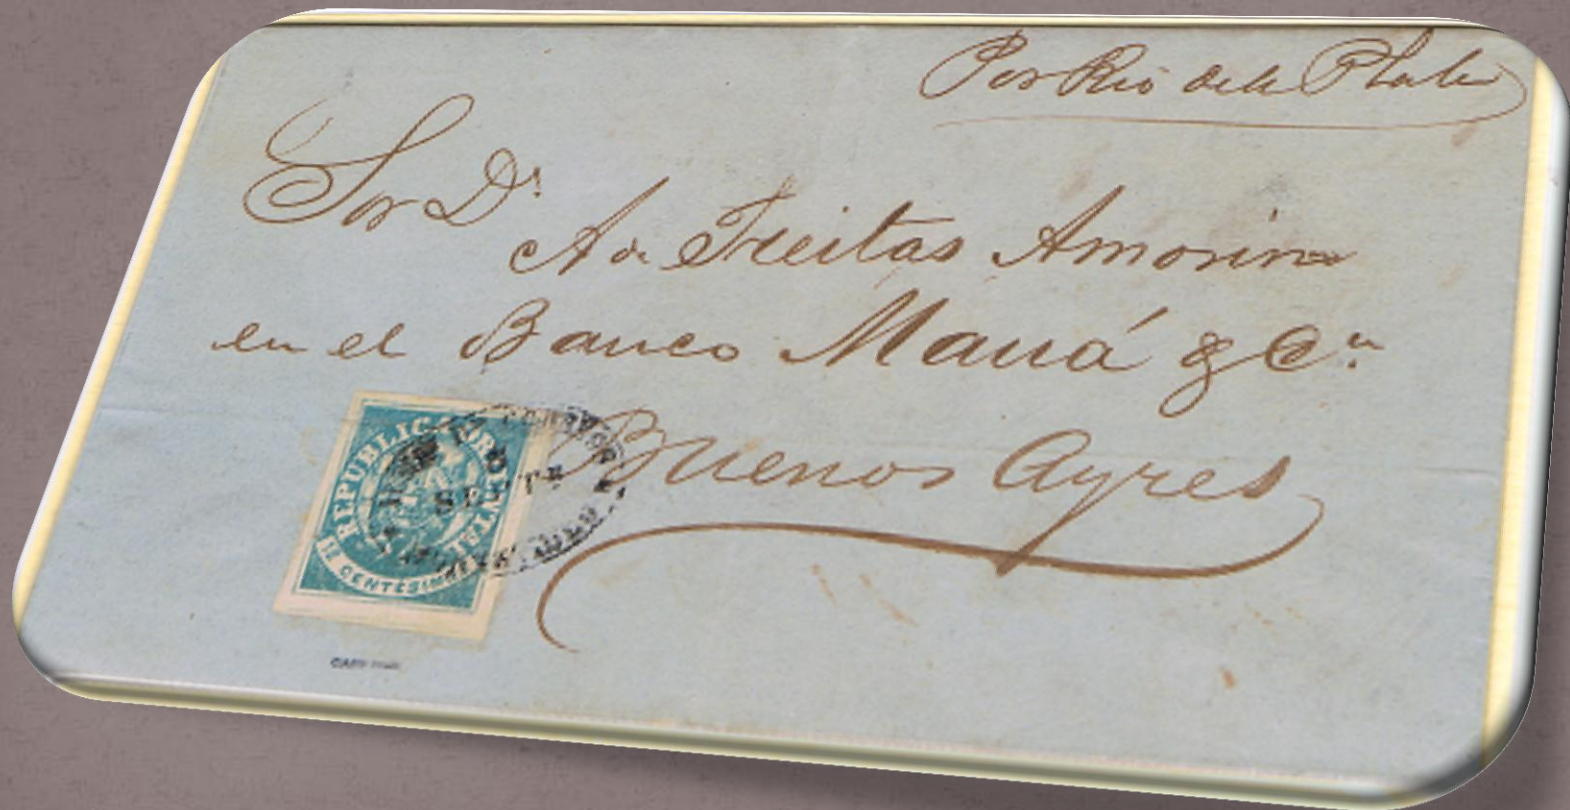 Por Rio dela Plata
Sor Dr
A de Freitas Amorin
en el Banco Mauá & Ca
Buenos Ayres
REPUBLICA ORIENTAL
12 CENTESIMOS